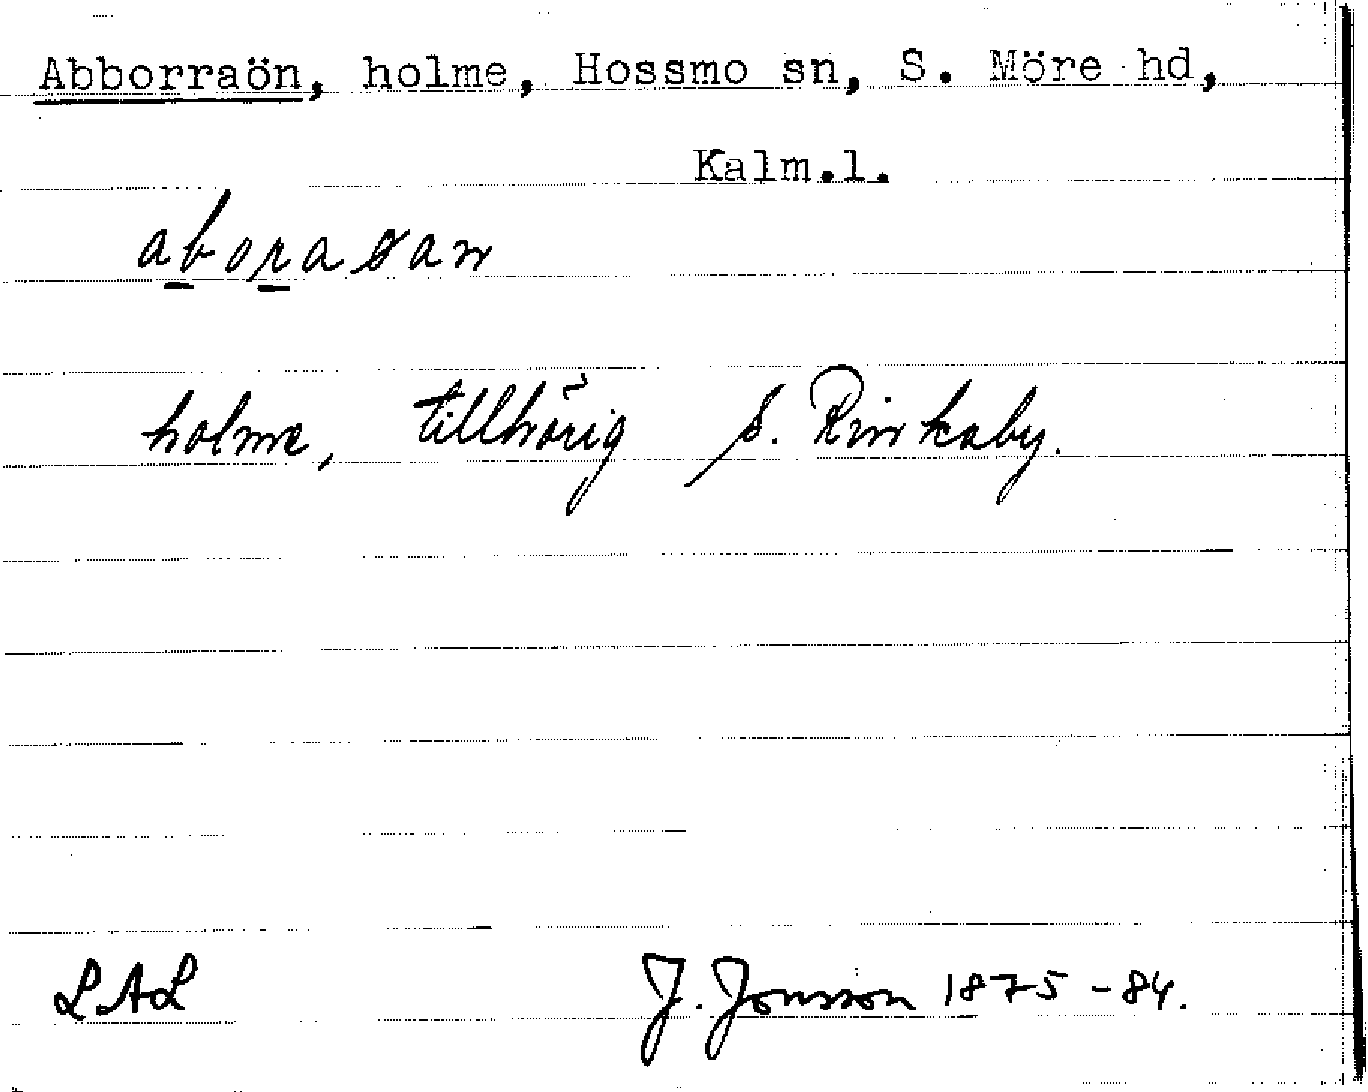 Abborraön, holme, Hossmo sn, S. Möre hd,
Kalm.l.
holme, tillhörig S. Rinkaby.
LAL J. Jonsson 1875-84.